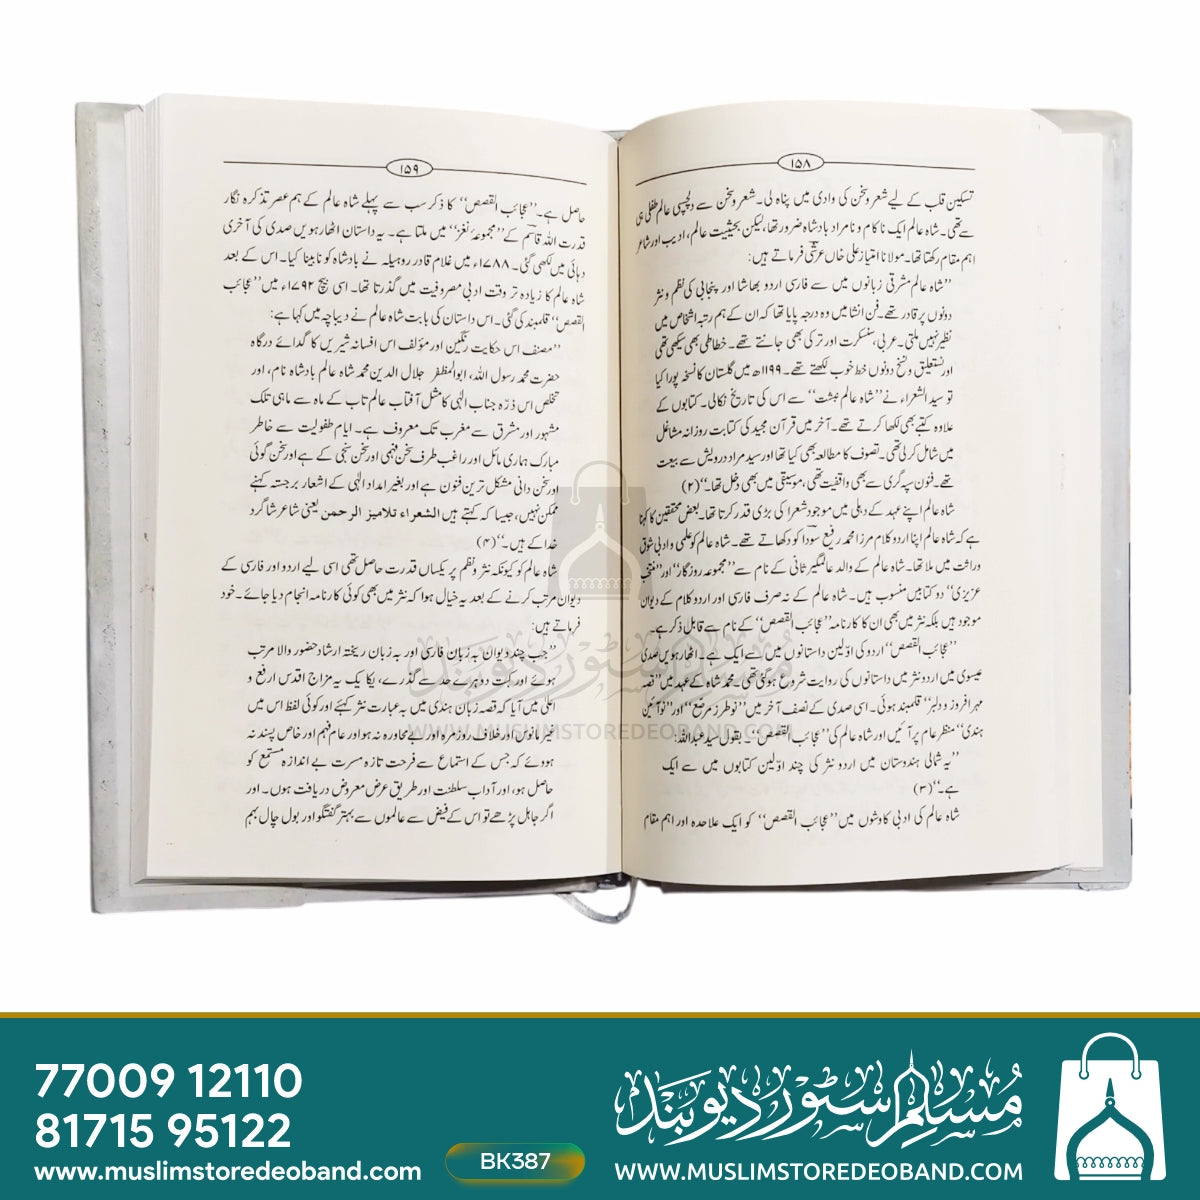 ۱۵۸
تسکین قلب کے لیے شعر و سخن کی وادی میں پناہ لی۔ شعر و سخن سے دلچسپی عالم طفلی ہی
سے تھی۔ شاہ عالم ایک ناکام و نامراد بادشاہ ضرور تھا، لیکن بحیثیت عالم، ادیب اور شاعر
اہم مقام رکھتا تھا۔ مولانا امتیاز علی خاں عرشی فرماتے ہیں:
”شاہ عالم مشرقی زبانوں میں سے فارسی اردو بھاشا اور پنجابی کی نظم و نثر
دونوں پر قادر تھے۔ فن انشا میں وہ درجہ پایا تھا کہ ان کے ہم رتبہ اشخاص میں
نظیر نہیں ملتی۔ عربی، سنسکرت اور ترکی بھی جانتے تھے۔ خطاطی بھی سیکھی تھی
اور نستعلیق و نسخ دونوں خط خوب لکھتے تھے۔ ۱۱۹۹ھ میں گلستان کا نسخہ پورا کیا
تو سید الشعراء نے ”شاہ عالم نبشت“ سے اس کی تاریخ نکالی۔ کتابوں کے
علاوہ کتبے بھی لکھا کرتے تھے۔ آخر میں قرآن مجید کی کتابت روزانہ مشاغل
میں شامل کرلی تھی۔ تصوف کا مطالعہ بھی کیا تھا اور سید مراد درویش سے بیعت
تھے۔ فنون سپہ گری سے بھی واقفیت تھی، موسیقی میں بھی دخل تھا۔“ (۲)
شاہ عالم اپنے عہد کے دہلی میں موجود شعرا کی بڑی قدر کرتا تھا۔ بعض محققین کا کہنا
ہے کہ شاہ عالم اپنا اردو کلام مرزا محمد رفیع سودا کو دکھاتے تھے۔ شاہ عالم کو علمی و ادبی شوق
وراثت میں ملا تھا۔ شاہ عالم کے والد عالمگیر ثانی کے نام سے ”مجموعہ روزگار“ اور ”منتخب
عزیزی“ دو کتابیں منسوب ہیں۔ شاہ عالم کے نہ صرف فارسی اور اردو کلام کے دیوان
موجود ہیں بلکہ نثر میں بھی ان کا کارنامہ ”عجائب القصص“ کے نام سے قابل ذکر ہے۔
”عجائب القصص“ اردو کی اوّلین داستانوں میں سے ایک ہے۔ اٹھارہویں صدی
عیسوی میں اردو نثر میں داستانوں کی روایت شروع ہوگئی تھی۔ محمد شاہ کے عہد میں ”قصہ
مہر افروز و دلبر“ قلمبند ہوئی۔ اسی صدی کے نصف آخر میں ”نو طرز مرصّع“ اور ”نو آئین
ہندی“ منظر عام پر آئیں اور شاہ عالم کی ”عجائب القصص“۔ بقول سید عبداللہ:
”یہ شمالی ہندوستان میں اردو نثر کی چند اوّلین کتابوں میں سے ایک
ہے۔“ (۳)
شاہ عالم کی ادبی کاوشوں میں ”عجائب القصص“ کو ایک علاحدہ اور اہم مقام
۱۵۹
حاصل ہے۔ ”عجائب القصص“ کا ذکر سب سے پہلے شاہ عالم کے ہم عصر تذکرہ نگار
قدرت اللہ قاسم کے ”مجموعہ نغز“ میں ملتا ہے۔ یہ داستان اٹھارہویں صدی کی آخری
دہائی میں لکھی گئی۔ ۱۷۸۸ء میں غلام قادر روہیلہ نے بادشاہ کو نابینا کیا۔ اس کے بعد
شاہ عالم کا زیادہ تر وقت ادبی مصروفیت میں گذرتا تھا۔ اسی بیچ ۱۷۹۲ء میں ”عجائب
القصص“ قلمبند کی گئی۔ اس داستان کی بابت شاہ عالم نے دیباچہ میں کہا ہے:
”مصنف اس حکایت رنگین اور مؤلف اس افسانہ شیریں کا گدائے درگاہ
حضرت محمد رسول اللہ، ابوالمظفر جلال الدین محمد شاہ عالم بادشاہ نام، اور
تخلص اس ذرّہ جناب الٰہی کا مثل آفتاب عالم تاب کے ماہ سے ماہی تلک
مشہور اور مشرق سے مغرب تک معروف ہے۔ ایام طفولیت سے خاطر
مبارک ہماری مائل اور راغب طرف سخن فہمی اور سخن سنجی کے ہے اور سخن گوئی
اور سخن دانی مشکل ترین فنون ہے اور بغیر امداد الٰہی کے اشعار برجستہ کہنے
ممکن نہیں، جیسا کہ کہتے ہیں الشعراء تلامیز الرحمن یعنی شاعر شاگرد
خدا کے ہیں۔“ (۴)
شاہ عالم کو کیونکہ نثر و نظم پر یکساں قدرت حاصل تھی اسی لیے اردو اور فارسی کے
دیوان مرتب کرنے کے بعد یہ خیال ہوا کہ نثر میں بھی کوئی کارنامہ انجام دیا جائے۔ خود
فرماتے ہیں:
”جب چند دیوان بہ زبان فارسی اور بہ زبان ریختہ ارشاد حضور والا مرتب
ہوئے اور کبت دوہرے حد سے گذرے، یکایک یہ مزاج اقدس ارفع و
اعلیٰ میں آیا کہ قصہ زبان ہندی میں بہ عبارت نثر کہیے اور کوئی لفظ اس میں
غیر مانوس اور خلاف روزمرہ اور بے محاورہ نہ ہو اور عام فہم اور خاص پسند نہ
ہووئے کہ جس کے استماع سے فرحت تازہ مسرت بے اندازہ مستمع کو
حاصل ہو، اور آداب سلطنت اور طریق عرض معروض دریافت ہوں۔ اور
اگر جاہل پڑھے تو اس کے فیض سے عالموں سے بہتر گفتگو اور بول چال بہم
مُسلم سٹور دیوبند
WWW.MUSLIMSTOREDEOBAND.COM
77009 12110
81715 95122
www.muslimstoredeoband.com
BK387
مُسلم سٹور دیوبند
WWW.MUSLIMSTOREDEOBAND.COM